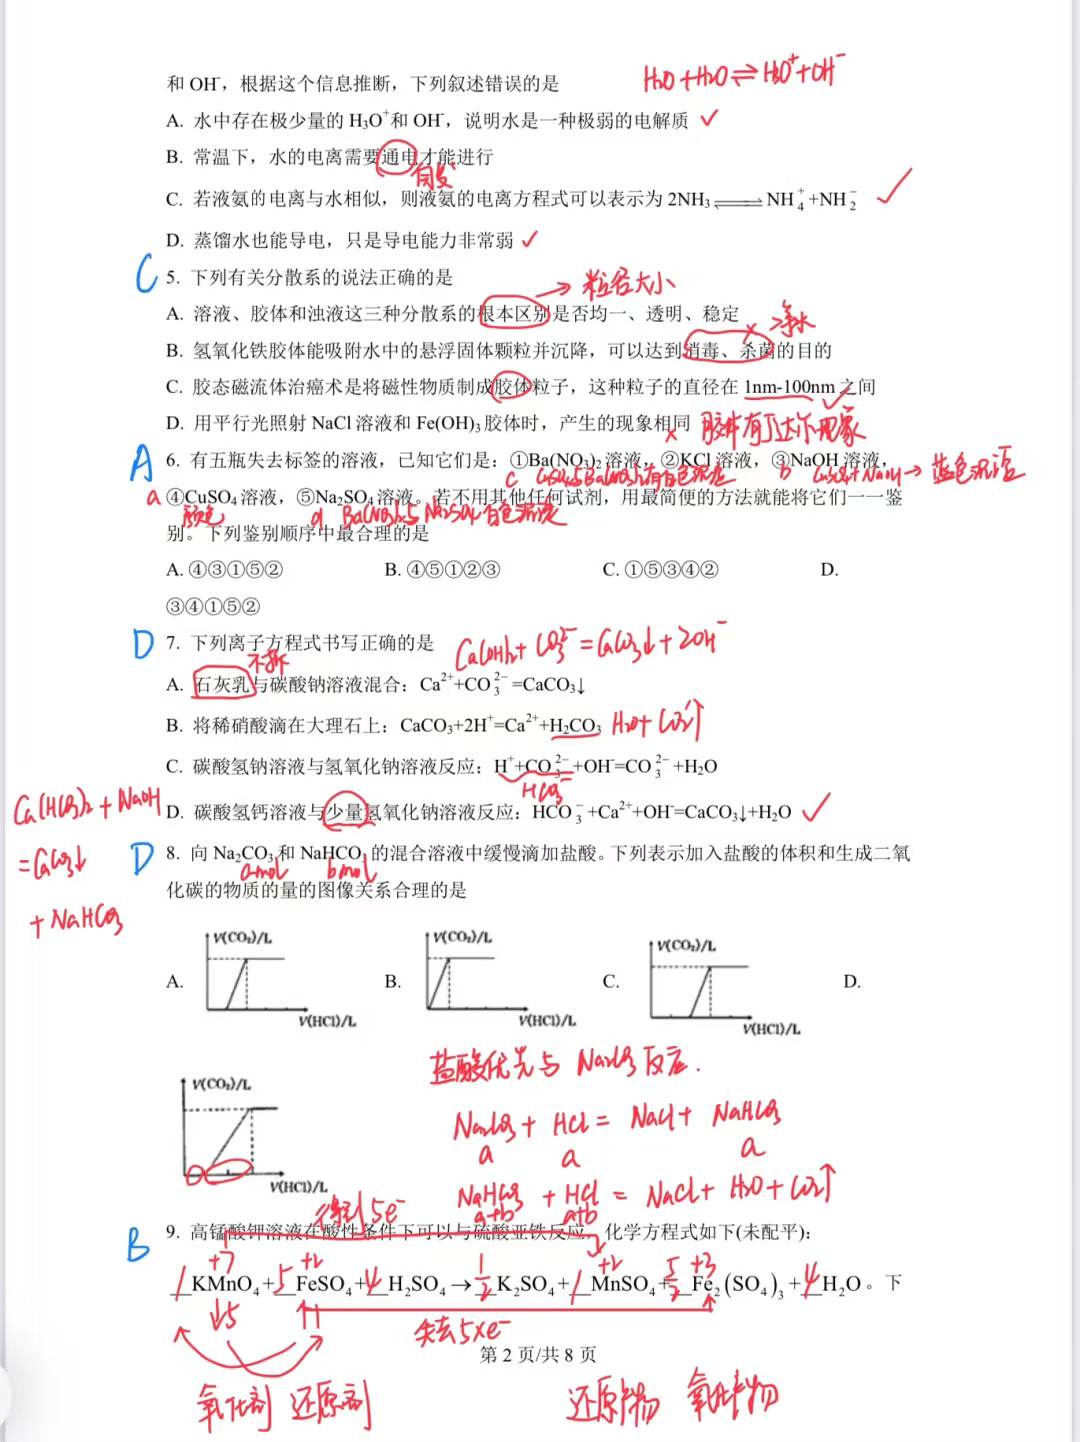 和 OH⁻，根据这个信息推断，下列叙述错误的是
H₂O+H₂O⇌H₃O⁺+OH⁻
A. 水中存在极少量的 H₃O⁺和 OH⁻，说明水是一种极弱的电解质 ✓
B. 常温下，水的电离需要通电才能进行
自发
C. 若液氨的电离与水相似，则液氨的电离方程式可以表示为 2NH₃⇌NH₄⁺+NH₂⁻ ✓
D. 蒸馏水也能导电，只是导电能力非常弱 ✓
C 5. 下列有关分散系的说法正确的是
→粒径大小
A. 溶液、胶体和浊液这三种分散系的根本区别是否均一、透明、稳定
× 净水
B. 氢氧化铁胶体能吸附水中的悬浮固体颗粒并沉降，可以达到消毒、杀菌的目的
C. 胶态磁流体治癌术是将磁性物质制成胶体粒子，这种粒子的直径在 1nm-100nm 之间 ✓
D. 用平行光照射 NaCl 溶液和 Fe(OH)₃ 胶体时，产生的现象相同
× 胶体有丁达尔现象
A 6. 有五瓶失去标签的溶液，已知它们是：①Ba(NO₃)₂ 溶液，②KCl 溶液，③NaOH 溶液，
c CuSO₄与Ba(NO₃)₂有白色沉淀 b CuSO₄+NaOH→蓝色沉淀
a ④CuSO₄ 溶液，⑤Na₂SO₄ 溶液。若不用其他任何试剂，用最简便的方法就能将它们一一鉴
颜色 d Ba(NO₃)₂与Na₂SO₄白色沉淀
别。下列鉴别顺序中最合理的是
A. ④③①⑤② B. ④⑤①②③ C. ①⑤③④② D.
③④①⑤②
D 7. 下列离子方程式书写正确的是
Ca(OH)₂+CO₃²⁻=CaCO₃↓+2OH⁻
不拆
A. 石灰乳与碳酸钠溶液混合：Ca²⁺+CO₃²⁻=CaCO₃↓
B. 将稀硝酸滴在大理石上：CaCO₃+2H⁺=Ca²⁺+H₂CO₃ H₂O+CO₂↑
C. 碳酸氢钠溶液与氢氧化钠溶液反应：H⁺+CO₃²⁻+OH⁻=CO₃²⁻+H₂O
HCO₃⁻
D. 碳酸氢钙溶液与少量氢氧化钠溶液反应：HCO₃⁻+Ca²⁺+OH⁻=CaCO₃↓+H₂O ✓
Ca(HCO₃)₂+NaOH
=CaCO₃↓
+NaHCO₃
D 8. 向 Na₂CO₃ 和 NaHCO₃ 的混合溶液中缓慢滴加盐酸。下列表示加入盐酸的体积和生成二氧
amol bmol
化碳的物质的量的图像关系合理的是
V(CO₂)/L V(CO₂)/L V(CO₂)/L
A. B. C. D.
V(HCl)/L V(HCl)/L V(HCl)/L
盐酸优先与 Na₂CO₃反应.
V(CO₂)/L
Na₂CO₃+HCl=NaCl+NaHCO₃
a a a
V(HCl)/L
NaHCO₃+HCl=NaCl+H₂O+CO₂↑
a+b a+b
得到5e⁻
B 9. 高锰酸钾溶液在酸性条件下可以与硫酸亚铁反应，化学方程式如下(未配平)：
+7 +2 +2 +3
1 KMnO₄+5 FeSO₄+4 H₂SO₄→1/2 K₂SO₄+1 MnSO₄+5/2 Fe₂(SO₄)₃+4 H₂O。下
↓5 ↑1
失去5×e⁻
第 2 页/共 8 页
氧化剂 还原剂 还原产物 氧化产物